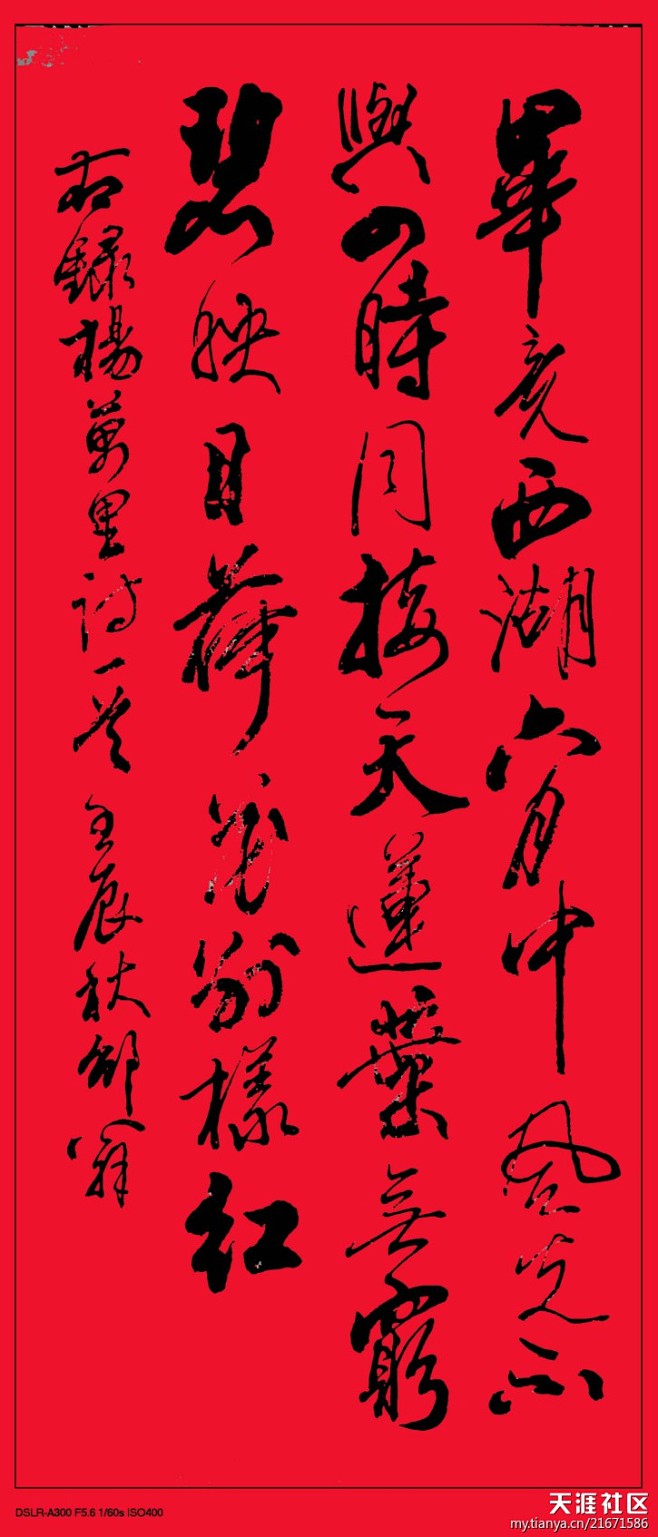 畢竟西湖六月中風光不
與四時同接天蓮葉無窮
碧映日荷花別樣紅
右錄楊萬里詩一首壬辰秋
DSLR-A300 F5.6 1/60s ISO400
天涯社区
my.tianya.cn/21671586